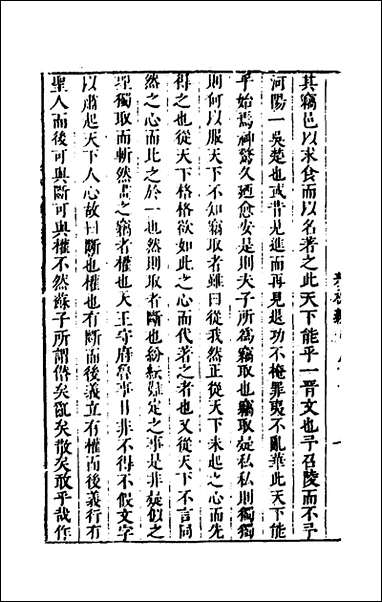 其竊邑以求食而以名著之此天下能乎一晉文也予召陵而不予
河陽一吳楚也或昔見進而再見退功不掩罪夷不亂華此天下能
乎始焉神驚久廼愈安是則夫子所爲竊取也竊取疑私私則獨獨
則何以服天下不知竊取者雖曰從我然正從天下未起之心而先
得之也從天下格格欲如此之心而代著之者也又從天下不言同
然之心而比之於一也然則取者斷也紛紜疑定之事是非疑似之
聖獨取而斬然畫之竊者權也天王守府魯事日非不得不假文字
以肅起天下人心故曰斷也權也有斷而後義立有權而後義行有
聖人而後可與斷可與權不然蘇子所謂僭矣亂矣散矣敢乎哉作
春秋
一